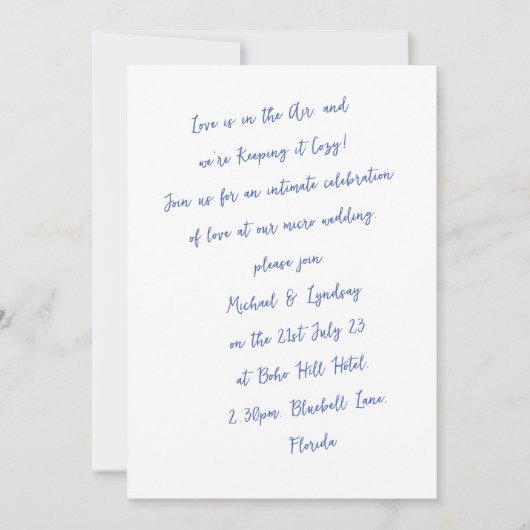 Love is in the Air, and
we're Keeping it Cozy!
Join us for an intimate celebration
of love at our micro wedding.
please join
Michael & Lyndsay
on the 21st July 23
at Boho Hill Hotel.
2.30pm. Bluebell Lane.
Florida